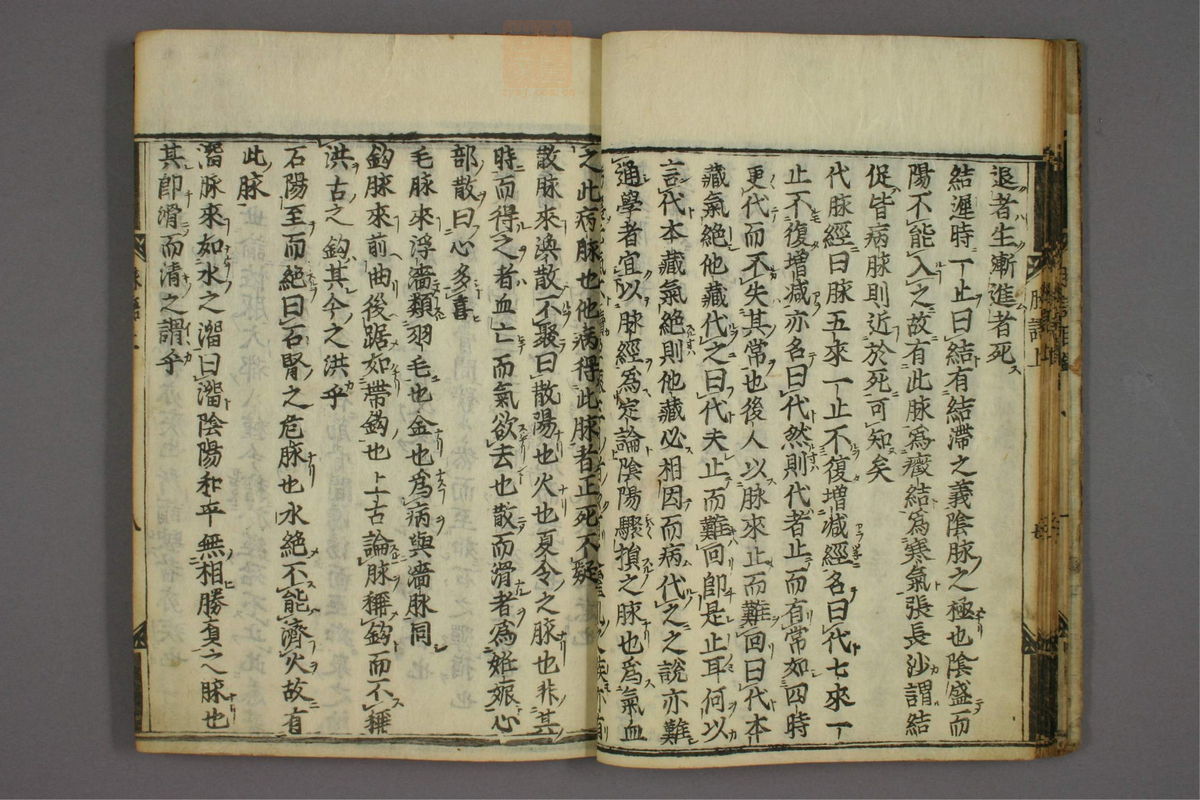 退者生漸進者死
結遲時一止曰結有結滯之義陰脉之極也陰盛而
陽不能入之故有此脉爲癥結爲寒氣張長沙謂結
促皆病脉則近於死可知矣
代脉經曰脉五來一止不復增減經名曰代七來一
止不復增減亦名曰代然則代者止而有常如四時
更代而不失其常也後人以脉來止而難回曰代本
藏氣絕他藏代之曰代夫止而難回卽是止耳何以
言代本藏氣絕則他藏必相因而病代之之說亦難
通學者宜以脉經爲定論陰陽驟損之脉也爲氣血
之此病脉也他病得此脉者正死不疑
散脉來渙散不聚曰散陽也火也夏令之脉也非其
時而得之者血亡而氣欲去也散而滑者爲姙娠心
部散曰心多喜
毛脉來浮濇類羽毛也金也爲病與濇脉同
鈎脉來前曲後踞如帶鈎也上古論脉稱鈎而不稱
洪古之鈎其今之洪乎
石陽至而絕曰石腎之危脉也水絕不能濟火故有
此脉
溜脉來如水之溜曰溜陰陽和平無相勝負之脉也
其卽滑而清之謂乎
脉語上